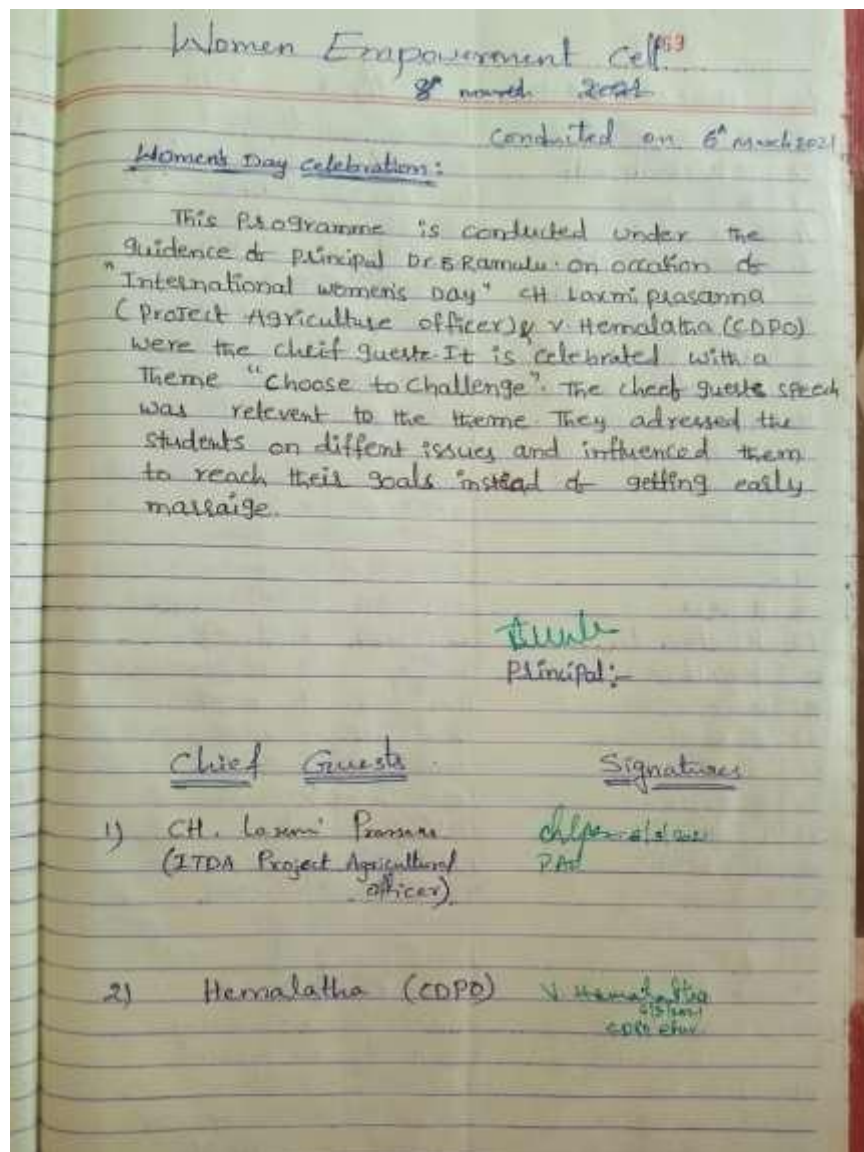 Women Empowerment Cell
8th march 2021
Conducted on 6th March 2021
Women's Day Celebrations:
This Programme is conducted under the
guidence of principal Dr B Ramulu. on occation of
"International women's Day" CH Laxmi prasanna
(Project Agriculture officer) & V. Hemalatha (CDPO)
were the cheif gueste. It is celebrated with a
Theme "Choose to Challenge". The cheef gueste speech
was relevent to the theme. They adressed the
students on diffent issues and influenced them
to reach their goals instead of getting early
marraige.
Principal:-
Chief Guests Signatures
1) CH. Laxmi Prasana
(ITDA Project Agricultural
officer)
PAO
2) Hemalatha (CDPO) V. Hemalatha
6/3/2021
CDPO